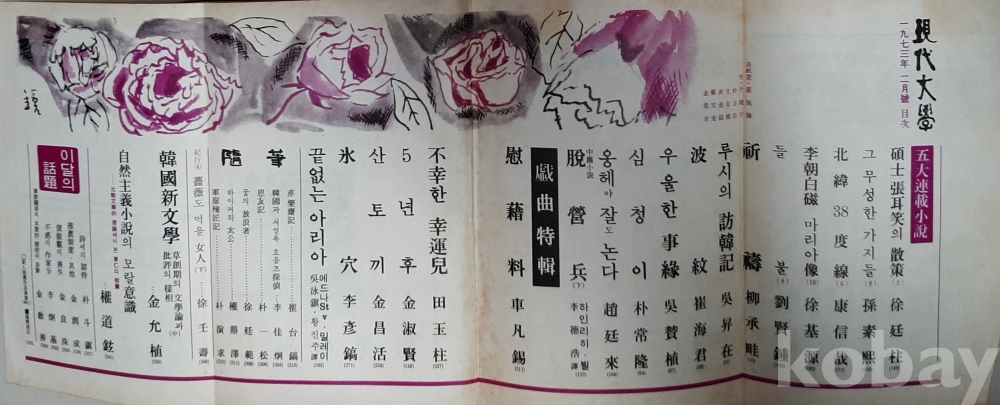 現代文學
一九七三年 二月號 目次
五大連載小說
碩士 張耳笑의 散策 ② 徐廷柱
그 무성한 가지들 ⑧ 孫素熙
北緯 38 度線 ⑥ 康信哉
李朝白磁 마리아像 ⑩ 徐基源
들불 ④ 劉賢鍾
祈禱 柳承畦
루시의 訪韓記 吳昇在
波紋 崔海君
우울한 事緣 吳贊植
심청이 朴常隆
옹헤야 잘도 논다 趙廷來
中篇小說
脫營兵 (下) 하인리히·뵐
李德浩 譯
戱曲特輯
慰藉料 車凡錫
不幸한 幸運兒 田玉柱
5년후 金淑賢
산토끼 金昌活
氷穴 李彦鎬
끝없는 아리아 에드나 St V·밀레이
吳泳鎭·황진주 譯
隨筆
亦樂齋記 崔台鎬
韓國과 셔얼록 호옴즈探偵 李佳炯
思友記 朴松
꿈의 放浪者 徐廷範
하이커와 太公 權熙澤
軍服檢匠記 朴演求
紀行④ 薔薇도 먹은 女人 (下) 徐壬壽
韓國新文學 草創期의 文學論과 批評의 樣相 (中) 金允植
自然主義小說의 모랄意識
權道鉉
이달의 話題
詩에의 期待 朴斗鎭
推薦制度·其他 金潤成
價値觀의 喪失 金良洙
不惑의 作家 李烔基
金敎善
kobay